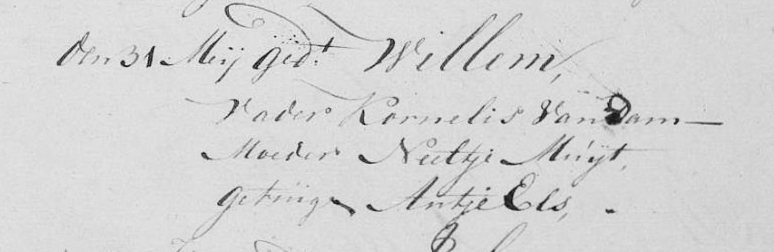 Den 31 Meij ged.t Willem,
Vader Kornelis Van Dam —
Moeder Neeltje Muijt,
getuige Antje Els,